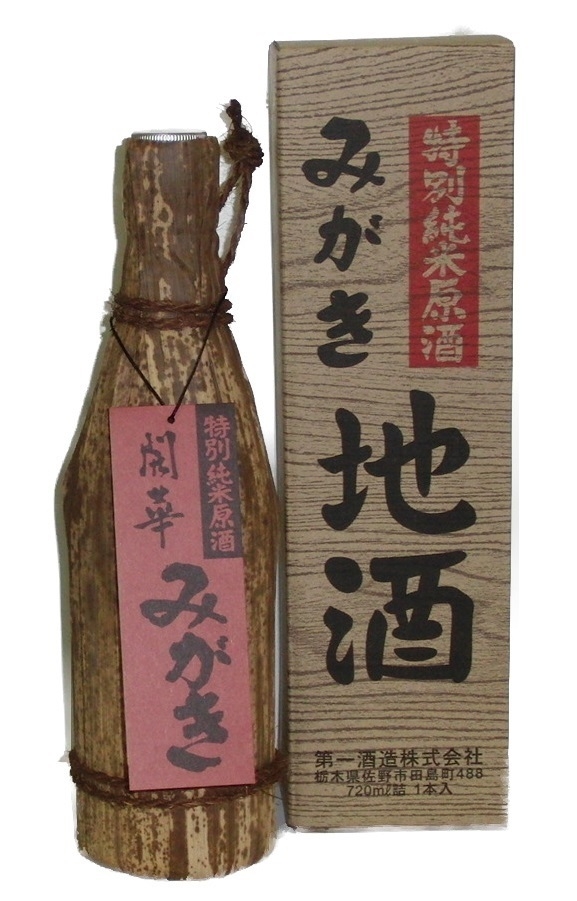 特別純米原酒
みがき
地酒
第一酒造株式会社
栃木県佐野市田島町488
720mℓ詰 1本入
特別純米原酒
開華
みがき